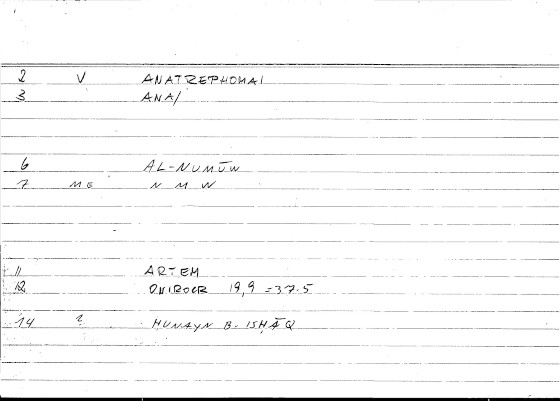 2 V ANATREPHOMAI
3 ANA/
6 AL-NUMŪW
7 ME N M W
11 ARTEM
12 ONIROCR 19,9 = 37.5
14 2 HUNAYN B. ISHĀQ